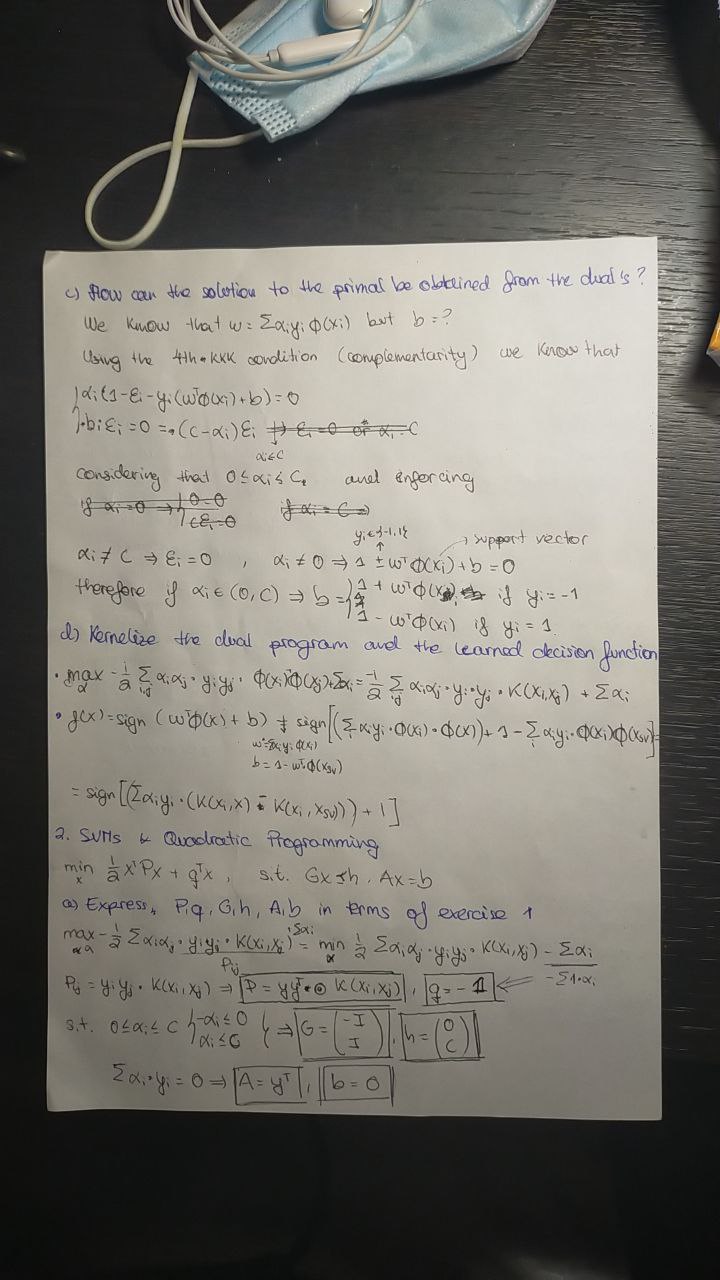 c) How can the solution to the primal be obtained from the dual's?
We know that w = Σαiyi φ(xi) but b = ?
Using the 4th KKK condition (complementarity) we know that
αi(1-εi-yi(wᵀφ(xi)+b) = 0
biεi = 0 => (C-αi)εi => εi = 0 or αi = C
αi≤C
considering that 0 ≤ αi ≤ C, and enforcing
if αi = 0 → { 0 = 0
CEi = 0
if αi = C →
yi ∈ {-1, 1}
→ support vector
αi ≠ C ⇒ εi = 0 , αi ≠ 0 ⇒ 1 ± wᵀφ(xi) + b = 0
therefore if αi ∈ (0, C) ⇒ b = { 1 + wᵀφ(xi) if yi = -1
1 - wᵀφ(xi) if yi = 1
d) Kernelize the dual program and the learned decision function
• max α - 1/2 Σij αiαj · yiyj · φ(xi)ᵀφ(xj) + Σαi = -1/2 Σij αiαj · yi · yj · K(xi,xj) + Σαi
• g(x) = sign (wᵀφ(x) + b) = sign[(Σi αiyi · φ(xi) · φ(x)) + 1 - Σi αiyi · φ(xi)φ(xsv)] =
w = Σαiyi φ(xi)
b = 1 - wᵀφ(xsv)
= sign[(Σαiyi · (K(xi,x) - K(xi, xsv))) + 1]
2. SVMs & Quadratic Programming
min x 1/2 xᵀPx + qᵀx , s.t. Gx ≤ h , Ax = b
a) Express, P,q, G,h, A,b in terms of exercise 1
max α - 1/2 Σαiαj · yiyj · K(xi,xj) + Σαi = min α 1/2 Σαiαj · yiyj · K(xi,xj) - Σαi
Pij
-Σ1·αi
Pij = yiyj · K(xi,xj) ⇒ P = yyᵀ ⊙ K(xi,xj) , q = -1
s.t. 0 ≤ αi ≤ C { -αi ≤ 0
αi ≤ C } ⇒ G = (-I I) , h = (0 C)
Σαi · yi = 0 ⇒ A = yᵀ , b = 0